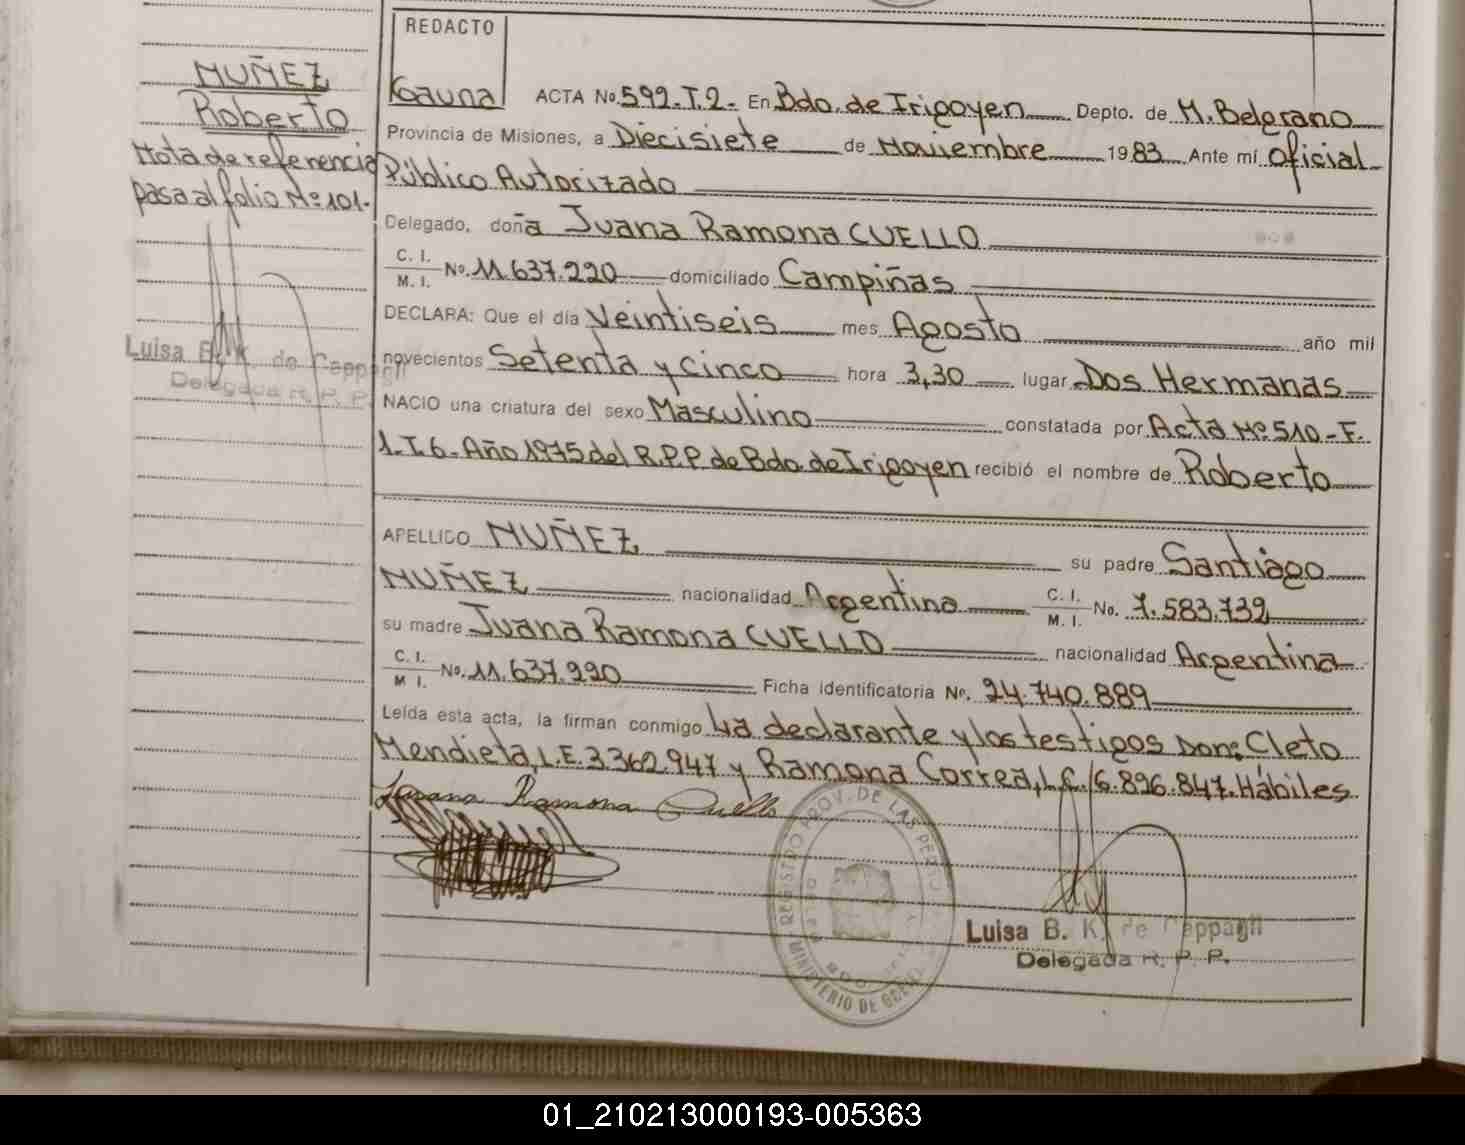 REDACTO
Gauna
MUÑEZ
Roberto
Nota de referencia
pasa al folio Nº 101.
Luisa B. K. de Cappagli
Delegada R. P. P.
ACTA No. 592-T.2- En Bdo. de Irigoyen Depto. de M. Belgrano
Provincia de Misiones, a Diecisiete de Noviembre 1983 Ante mí Oficial
Público Autorizado
Delegado, doña Juana Ramona CUELLO
C. I.
M. I. No. 11.637.220 domiciliado Campiñas
DECLARA: Que el día Veintiseis mes Agosto año mil
novecientos Setenta y Cinco hora 3,30 lugar Dos Hermanas
NACIO una criatura del sexo Masculino constatada por Acta Nº 510-F.
1-T.6-Año 1975 del R.P.P de Bdo. de Irigoyen recibió el nombre de Roberto
APELLIDO MUÑEZ su padre Santiago
MUÑEZ nacionalidad Argentina C. I.
M. I. No. 7.583.739
su madre Juana Ramona CUELLO nacionalidad Argentina
C. I.
M I. No. 11.637.220 Ficha identificatoria No. 24.740.889
Leída esta acta, la firman conmigo La declarante y los testigos Don: Cleto
Mendieta, L.E. 3.362.947 y Ramona Correa, L.C. 6.896.847. Hábiles
Juana Ramona Cuello
REGISTRO PROV. DE LAS
MINISTERIO DE
Luisa B. K. de Cappagli
Delegada R. P. P.
01_210213000193-005363